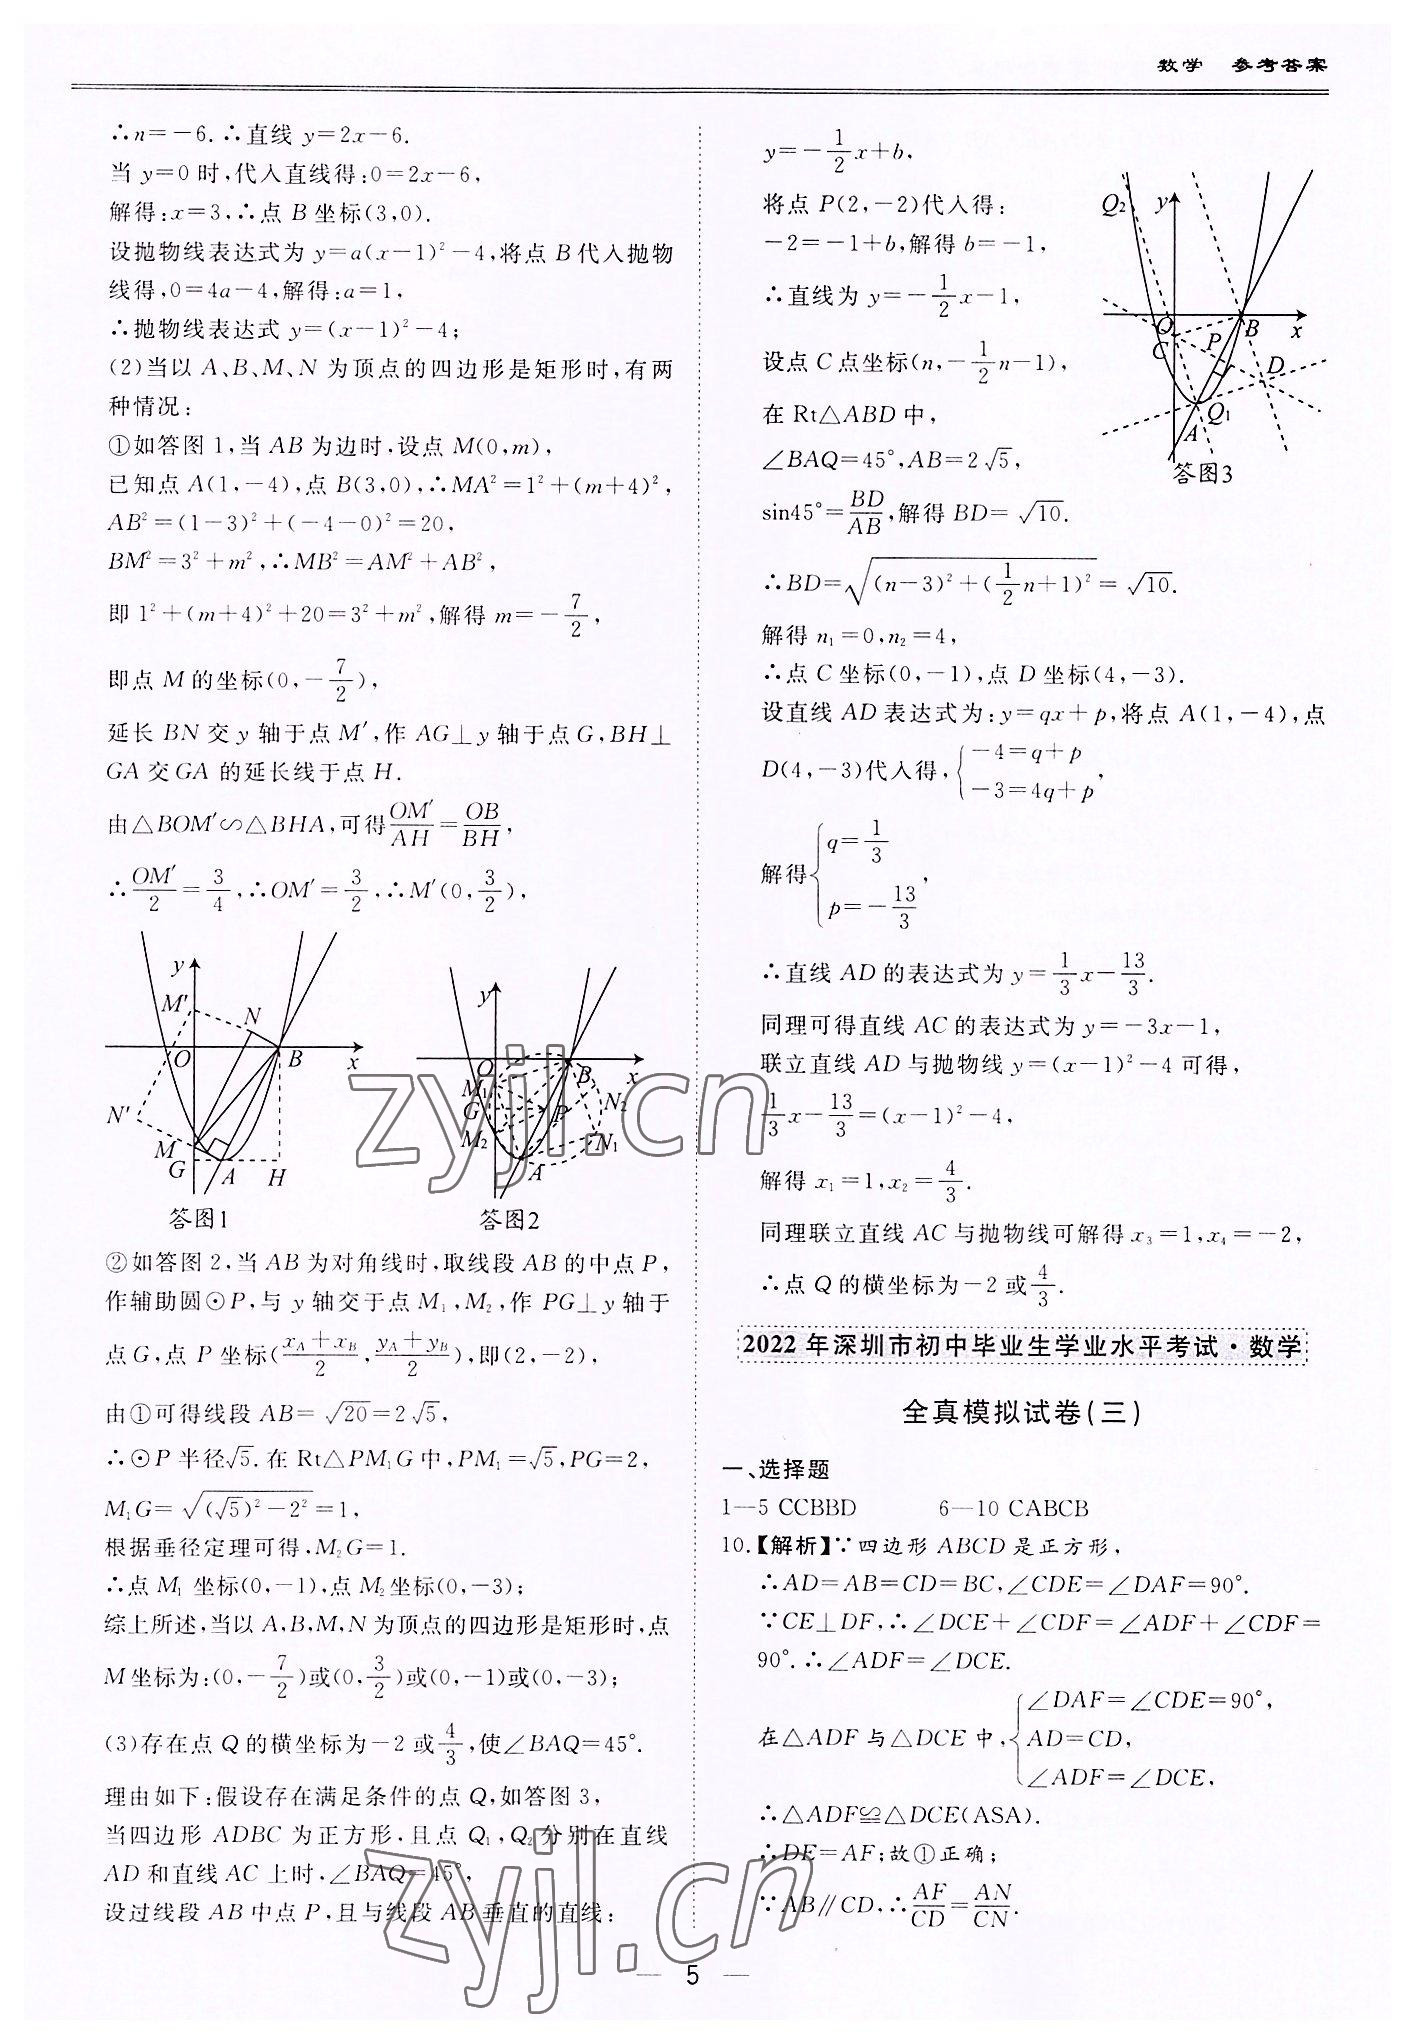 数学 参考答案
∴n=-6.∴直线 y=2x-6.
当 y=0 时,代入直线得:0=2x-6,
解得:x=3,∴点 B 坐标(3,0).
设抛物线表达式为 y=a(x-1)²-4,将点 B 代入抛物
线得,0=4a-4,解得:a=1,
∴抛物线表达式 y=(x-1)²-4;
(2)当以 A、B、M、N 为顶点的四边形是矩形时,有两
种情况:
①如答图 1,当 AB 为边时,设点 M(0,m),
已知点 A(1,-4),点 B(3,0),∴MA²=1²+(m+4)²,
AB²=(1-3)²+(-4-0)²=20,
BM²=3²+m²,∴MB²=AM²+AB²,
即 1²+(m+4)²+20=3²+m²,解得 m=-7/2,
即点 M 的坐标(0,-7/2),
延长 BN 交 y 轴于点 M′,作 AG⊥y 轴于点 G,BH⊥
GA 交 GA 的延长线于点 H.
由△BOM′∽△BHA,可得OM′/AH=OB/BH,
∴OM′/2=3/4,∴OM′=3/2,∴M′(0,3/2),
y
M′
N
O
B
x
N′
M
G
A
H
答图1
y
O
B
x
M₁
G
P
N₂
M₂
N₁
A
答图2
②如答图 2,当 AB 为对角线时,取线段 AB 的中点 P,
作辅助圆⊙P,与 y 轴交于点 M₁,M₂,作 PG⊥y 轴于
点 G,点 P 坐标((x_A+x_B)/2,(y_A+y_B)/2),即(2,-2),
由①可得线段 AB=√20=2√5,
∴⊙P 半径√5.在 Rt△PM₁G 中,PM₁=√5,PG=2,
M₁G=√((√5)²-2²)=1,
根据垂径定理可得,M₂G=1.
∴点 M₁ 坐标(0,-1),点 M₂坐标(0,-3);
综上所述,当以 A,B,M,N 为顶点的四边形是矩形时,点
M 坐标为:(0,-7/2)或(0,3/2)或(0,-1)或(0,-3);
(3)存在点 Q 的横坐标为-2 或4/3,使∠BAQ=45°.
理由如下:假设存在满足条件的点 Q,如答图 3,
当四边形 ADBC 为正方形,且点 Q₁,Q₂分别在直线
AD 和直线 AC 上时,∠BAQ=45°,
设过线段 AB 中点 P,且与线段 AB 垂直的直线:
y=-1/2x+b,
将点 P(2,-2)代入得:
-2=-1+b,解得 b=-1,
∴直线为 y=-1/2x-1,
设点 C 点坐标(n,-1/2n-1),
在 Rt△ABD 中,
∠BAQ=45°,AB=2√5,
sin45°=BD/AB,解得 BD=√10.
Q₂
y
O
B
x
C
P
D
Q₁
A
答图3
∴BD=√((n-3)²+(1/2n+1)²)=√10.
解得 n₁=0,n₂=4,
∴点 C 坐标(0,-1),点 D 坐标(4,-3).
设直线 AD 表达式为:y=qx+p,将点 A(1,-4),点
D(4,-3)代入得,{-4=q+p
-3=4q+p,
解得{q=1/3
p=-13/3,
∴直线 AD 的表达式为 y=1/3x-13/3.
同理可得直线 AC 的表达式为 y=-3x-1,
联立直线 AD 与抛物线 y=(x-1)²-4 可得,
1/3x-13/3=(x-1)²-4,
解得 x₁=1,x₂=4/3.
同理联立直线 AC 与抛物线可解得 x₃=1,x₄=-2,
∴点 Q 的横坐标为-2 或4/3.
2022 年深圳市初中毕业生学业水平考试·数学
全真模拟试卷(三)
一、选择题
1—5 CCBBD 6—10 CABCB
10.【解析】∵四边形 ABCD 是正方形,
∴AD=AB=CD=BC,∠CDE=∠DAF=90°.
∵CE⊥DF,∴∠DCE+∠CDF=∠ADF+∠CDF=
90°.∴∠ADF=∠DCE.
在△ADF 与△DCE 中,{∠DAF=∠CDE=90°,
AD=CD,
∠ADF=∠DCE,
∴△ADF≌△DCE(ASA).
∴DE=AF;故①正确;
∵AB∥CD,∴AF/CD=AN/CN.
zyjl.cn
zyjl.cn
— 5 —